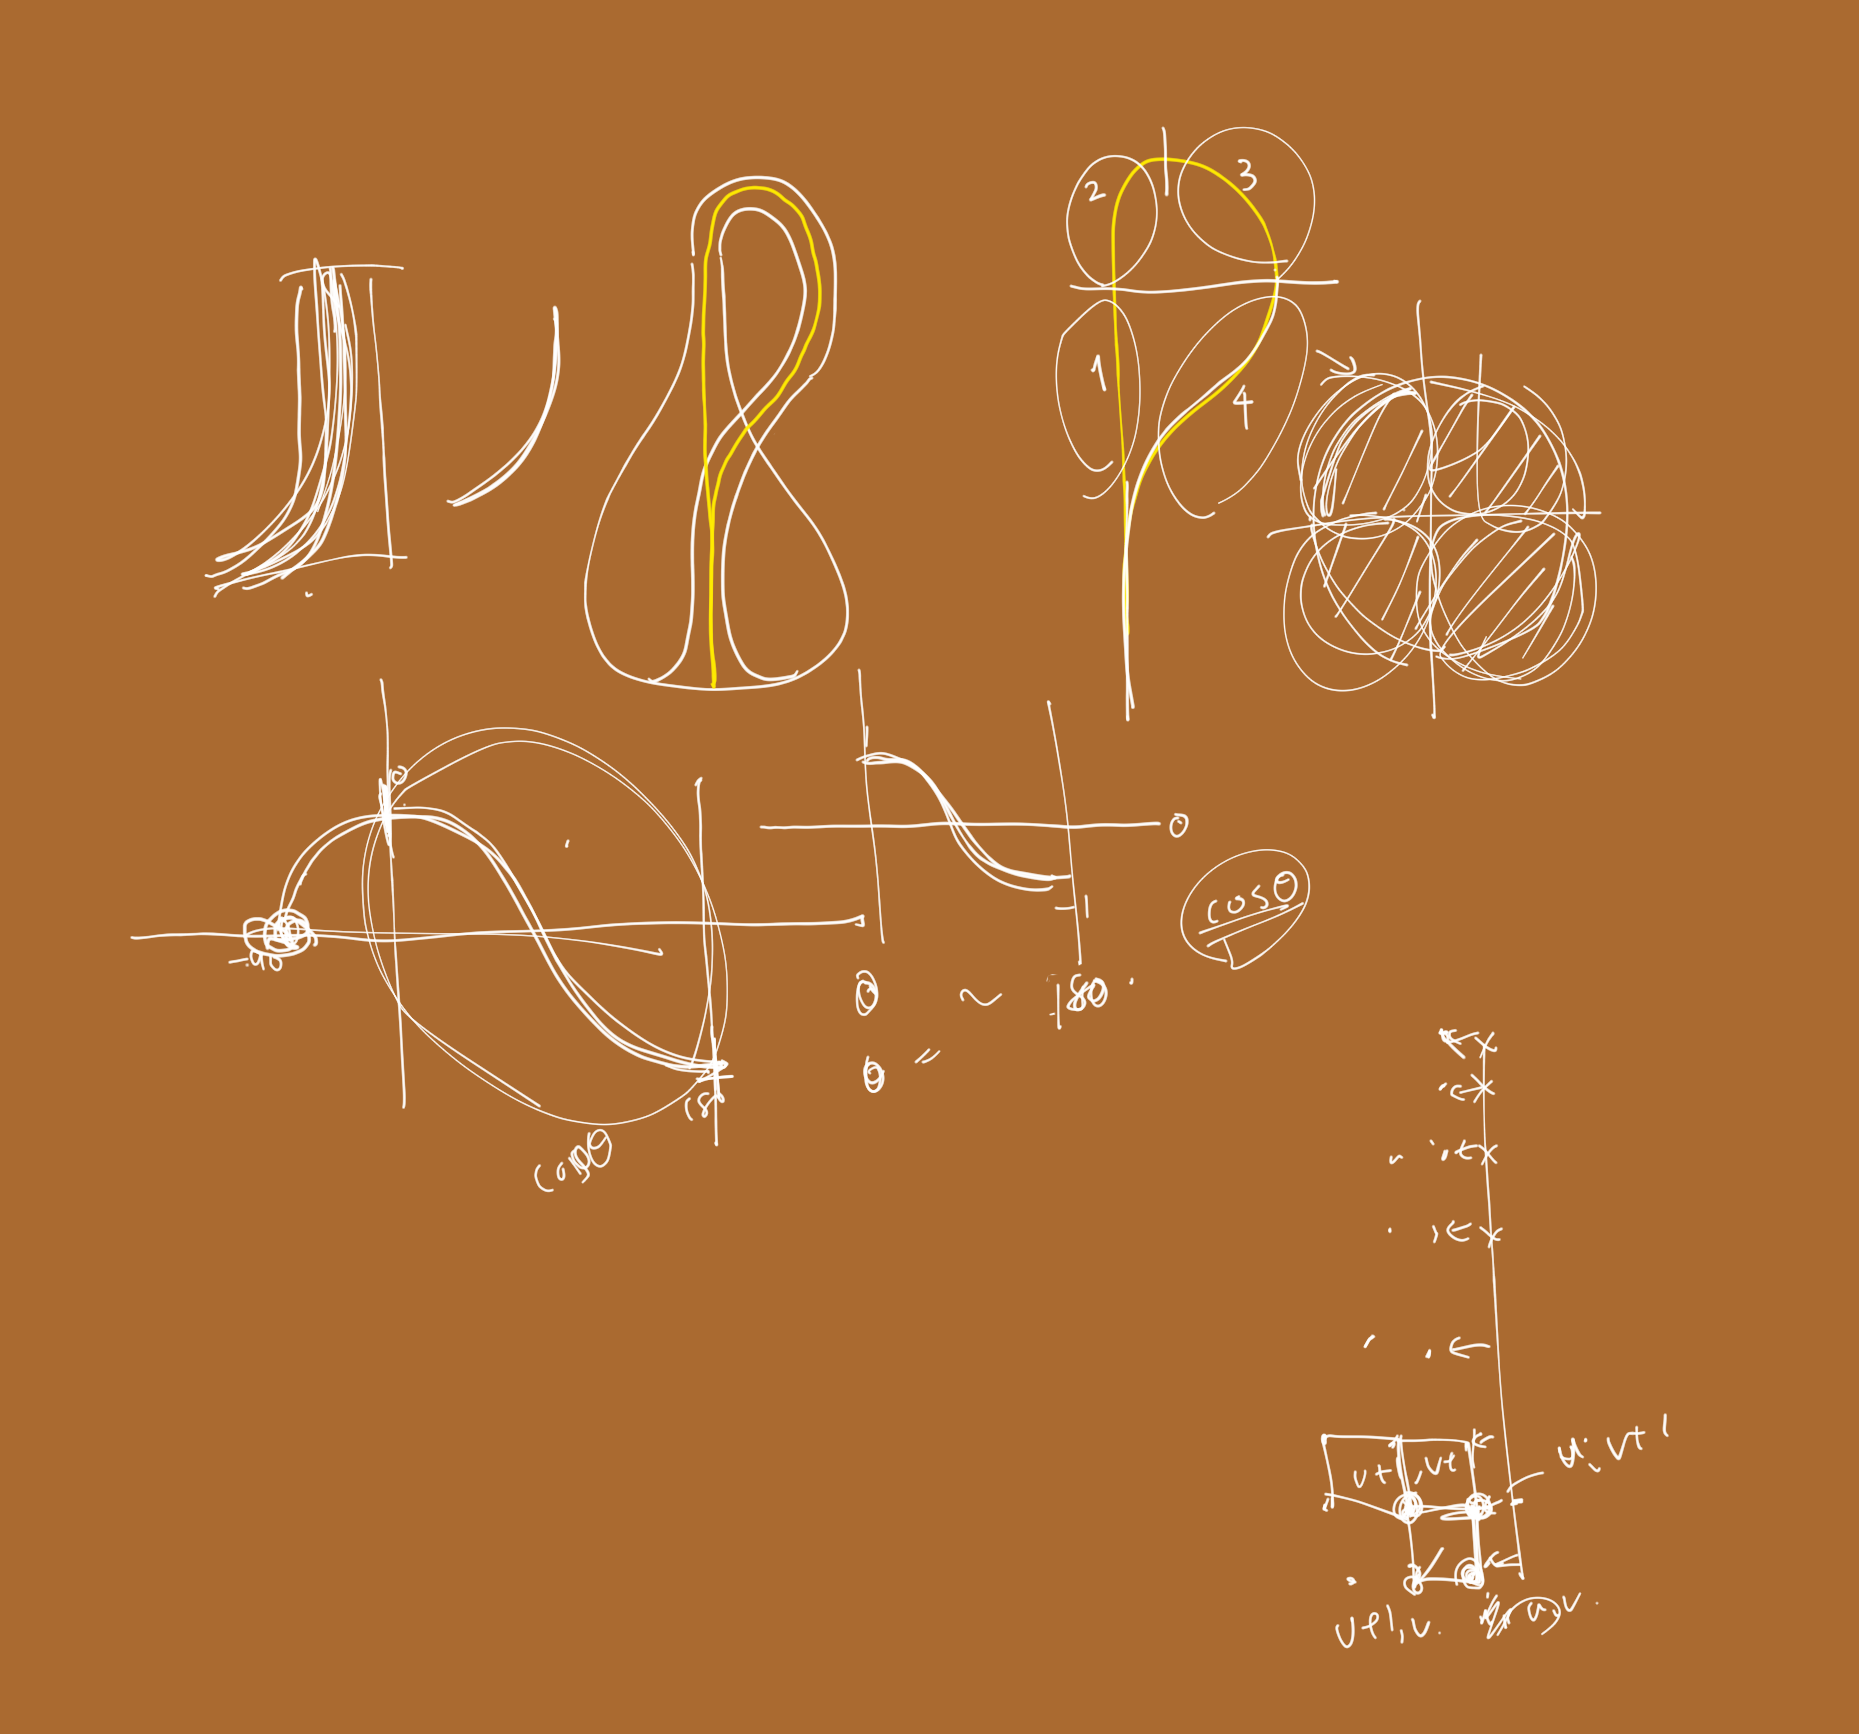 2
3
1
4
0
-90
180
cosθ
0
-1
0 ~ 180
θ =
cosθ
u+1, v+1
u, v+1
u+1, v.
u, v.